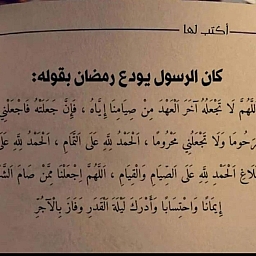 أكتب لها
كان الرسول يودع رمضان بقوله:
اللَّهُمَّ لَا تَجْعَلْهُ آخَرَ الْعَهْدِ مِنْ صِيَامِنَا إِيَّاهُ ، فَإِنْ جَعَلْتَهُ فَاجْعَلْنِي
مَرْحُومًا وَلَا تَجْعَلْنِي مَحْرُومًا ، الْحَمْدُ لِلَّهِ عَلَى التَّمَامِ ، الْحَمْدُ لِلَّهِ عَلَى
الْحَمْدِ لِلَّهِ عَلَى الصِّيَامِ وَالْقِيَامِ ، اللَّهُمَّ اِجْعَلْنَا مِمَّنْ صَامَ
إِيمَانًا وَاحْتِسَابًا وَأَدْرَكَ لَيْلَةَ الْقَدَرِ وَفَازَ بِالْآجُرِّ